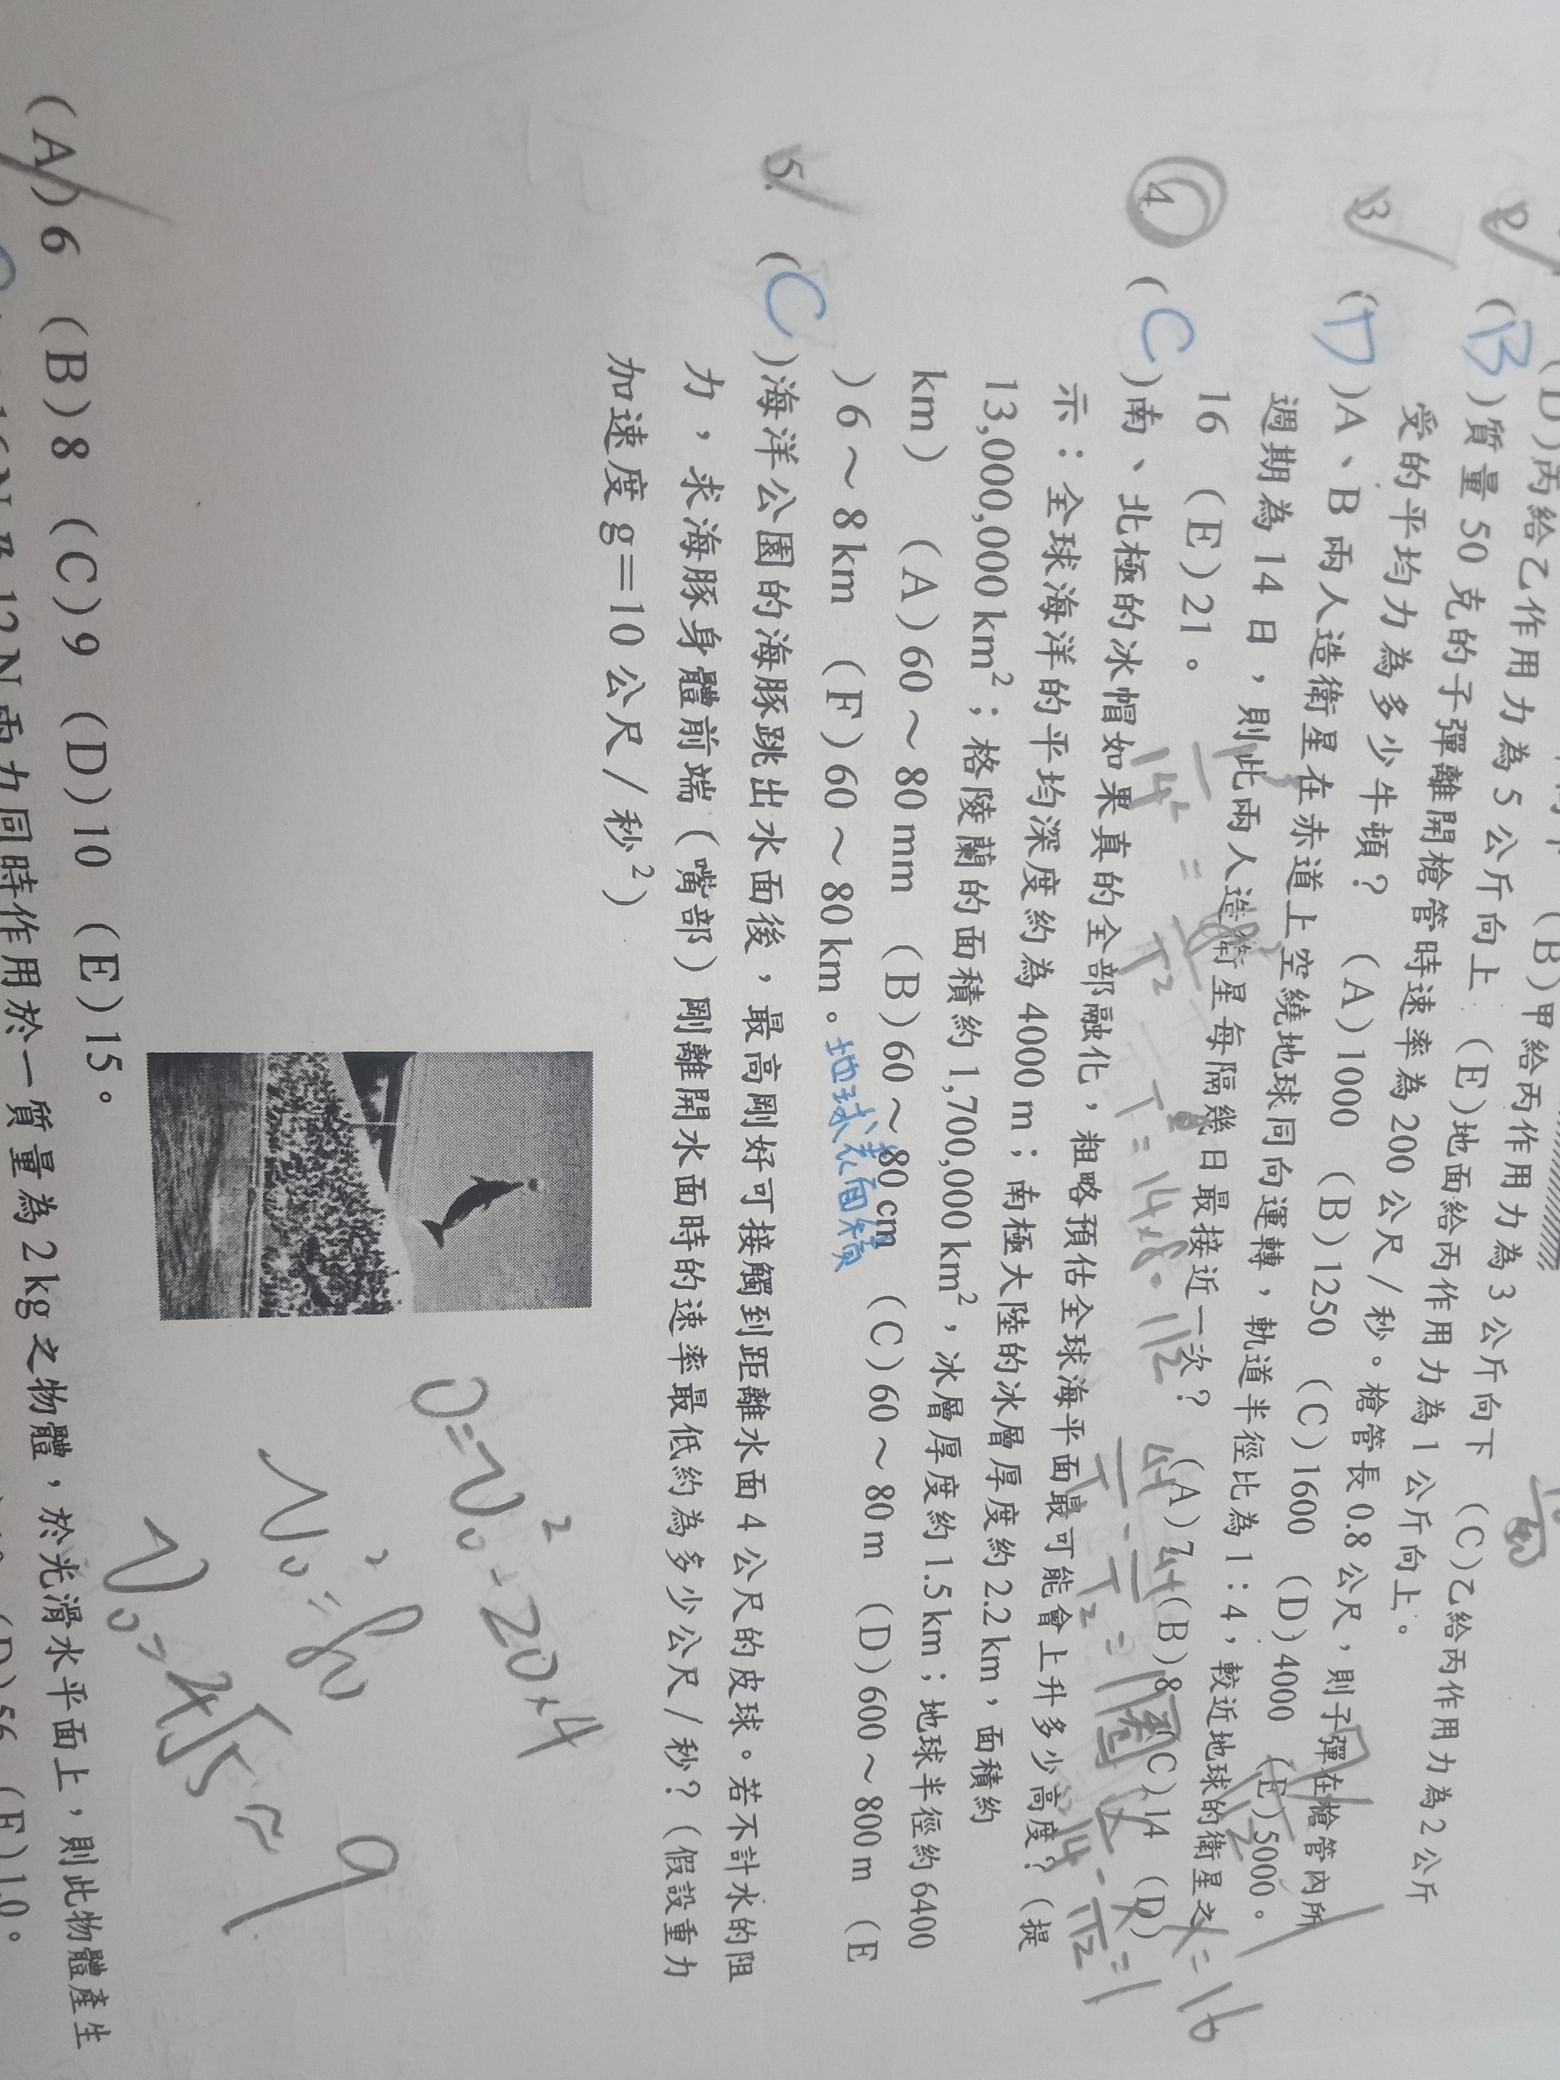 (D)丙給乙作用力為5公斤向上 (E)地面給丙作用力為1公斤向上。
(B)甲給丙作用力為3公斤向下 (C)乙給丙作用力為2公斤
2. (B)質量50克的子彈離開槍管時速率為200公尺/秒。槍管長0.8公尺,則子彈在槍管內所
受的平均力為多少牛頓? (A)1000 (B)1250 (C)1600 (D)4000 (E)5000。
3. (D)A、B兩人造衛星在赤道上空繞地球同向運轉,軌道半徑比為1:4,較近地球的衛星之
週期為14日,則此兩人造衛星每隔幾日最接近一次? (A)7 (B)8 (C)14 (D)
16 (E)21。
4. (C)南、北極的冰帽如果真的全部融化,粗略預估全球海平面最可能會上升多少高度?(提
示:全球海洋的平均深度約為4000m;南極大陸的冰層厚度約2.2km,面積約
13,000,000km²;格陵蘭的面積約1,700,000km²,冰層厚度約1.5km;地球半徑約6400
km) (A)60~80mm (B)60~80cm (C)60~80m (D)600~800m (E
)6~8km (F)60~80km。
地球表面積
5. (C)海洋公園的海豚跳出水面後,最高剛好可接觸到距離水面4公尺的皮球。若不計水的阻
力,求海豚身體前端(嘴部)剛離開水面時的速率最低約為多少公尺/秒?(假設重力
加速度g=10公尺/秒²)
0=V₀²-20×4
V₀²=80
V₀=4√5≈9
(A)6 (B)8 (C)9 (D)10 (E)15。
16N及12N兩力同時作用於一質量為2kg之物體,於光滑水平面上,則此物體產生
(D)56 (E)1.0。